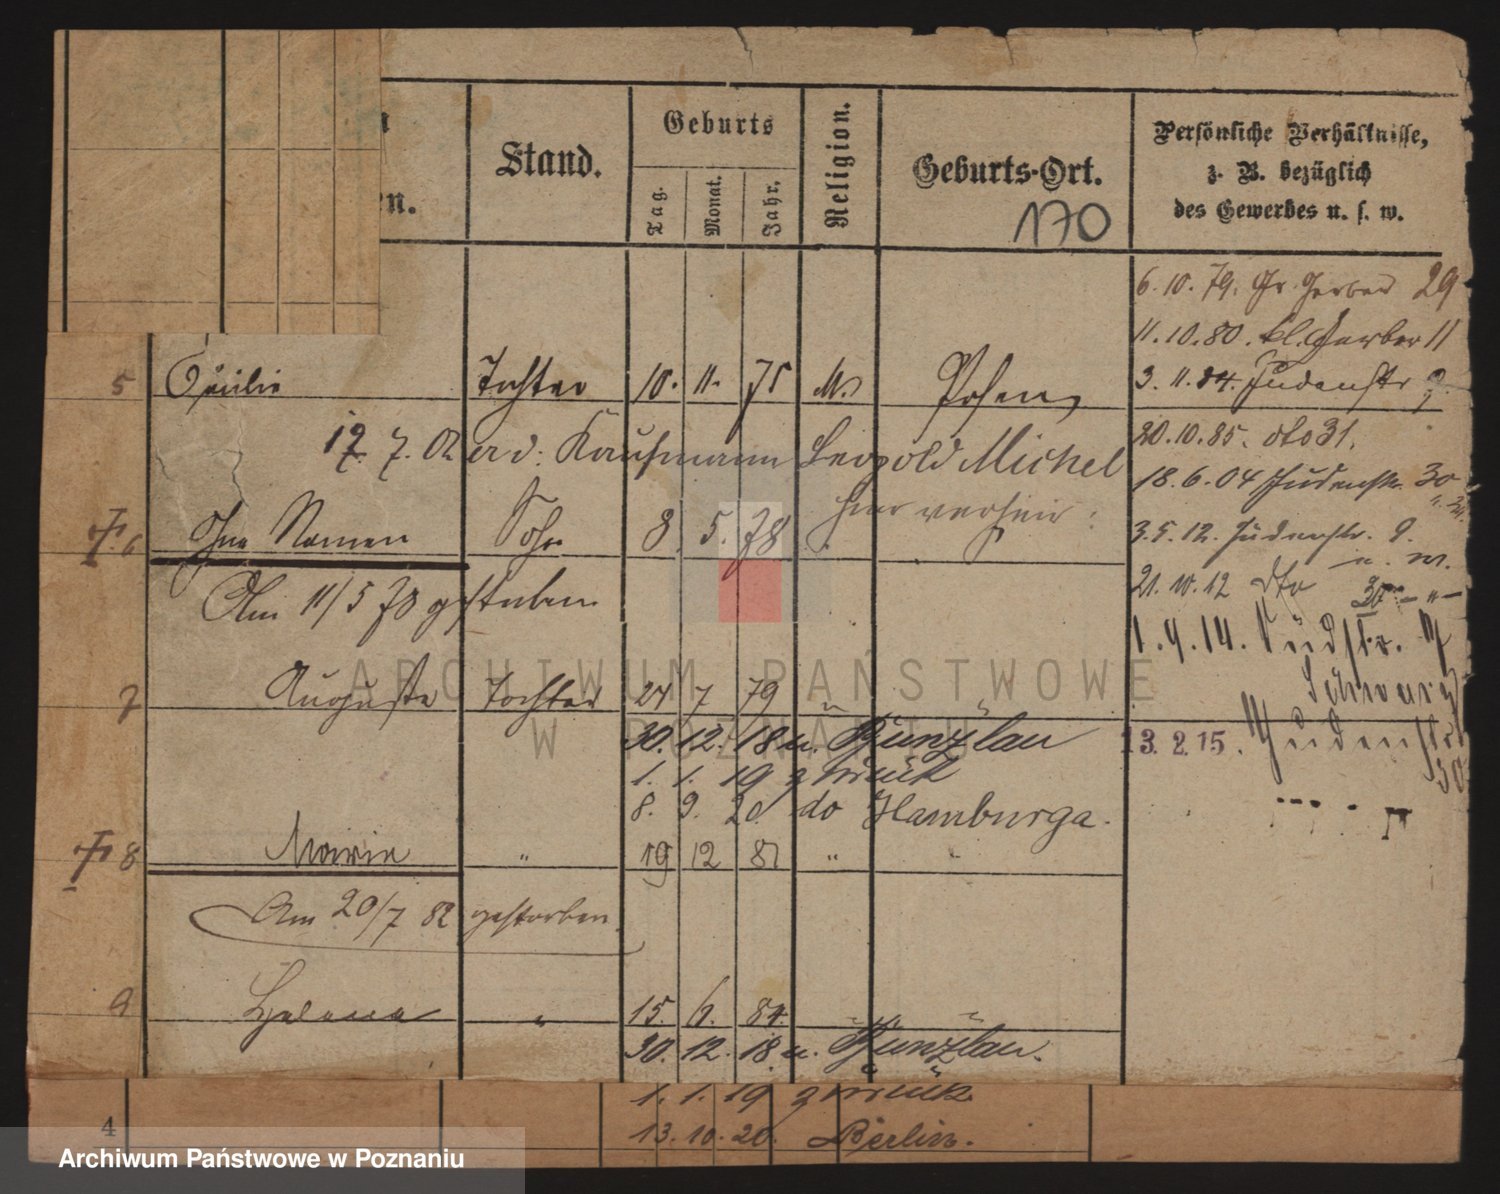 Stand.
Geburts
Tag.
Monat.
Jahr.
Religion.
Geburts-Ort.
170
Persönliche Verhältnisse,
z. B. bezüglich
des Gewerbes u. s. w.
en.
6. 10. 79. Gr. Gerber 29
11. 10. 80. kl. Gerber 11
5 Cäcilie Tochter 10. 11. 75 M. Posen
3. 11. 84. Judenstr
20. 10. 85. dto 31.
12. 7. 02 Kaufmann Leopold Michel
18. 6. 04 Judenstr. 30
hier verheir:
6 Ohne Namen Sohn 8 5. 78
3. 5. 12. Judenstr. 9.
21. 10. 12 dto 30
Am 11/5 78 gestorben
1. 4. 14. Südstr.
7 Auguste Tochter 24 7 79
30. 12. 18 n. Bunzlau
13. 2. 15. Judenstr
30
1. 1. 19 zurück
8. 9. 20 do Hamburg
8 Marie " 19 12 81 "
Am 20/7 82 gestorben
9 Helene " 15. 6. 84.
30. 12. 18. n. Bunzlau.
1. 1. 19 zurück
13. 10. 20. Berlin.
4
ARCHIWUM PAŃSTWOWE
W POZNANIU
Archiwum Państwowe w Poznaniu